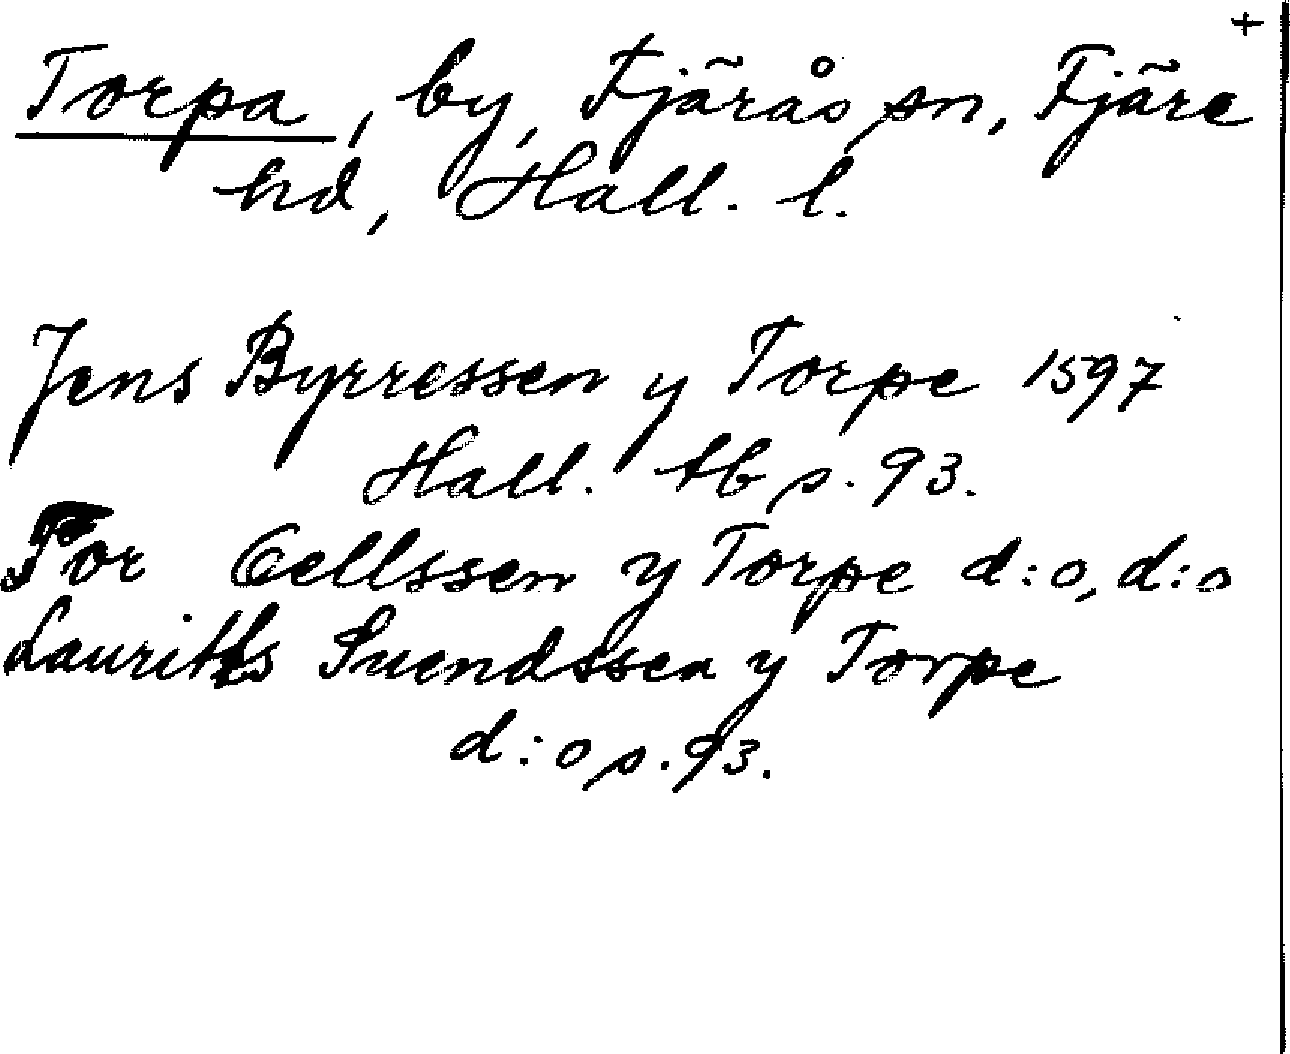 +
Torpa, by, Fjärås sn, Fjäre
hd, Hall. l.
Jens Byrressen y Torpe 1597
Hall. tb s. 93.
Tor Cellssen y Torpe d:o, d:o
Lauritts Suendssen y Torpe
d:o s. 93.